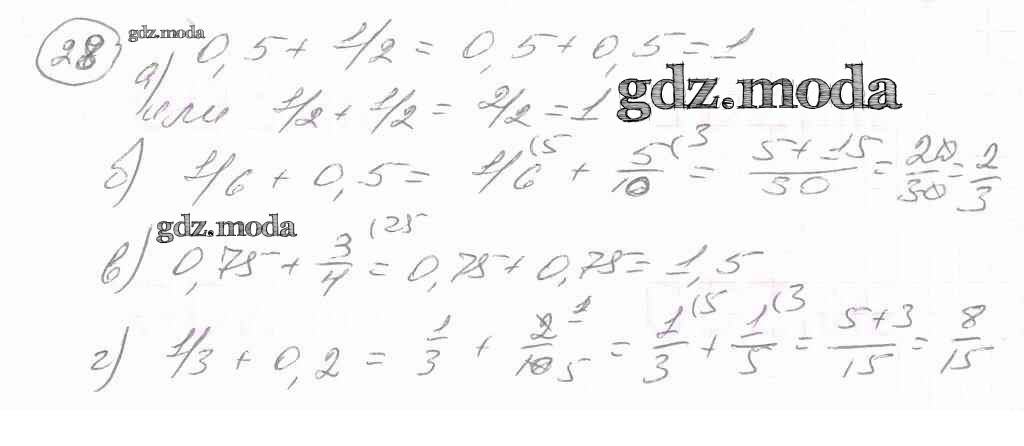 28 gdz.moda
а) 0,5 + 1/2 = 0,5 + 0,5 = 1
или 1/2 + 1/2 = 2/2 = 1 gdz.moda
б) 1/6 (5 + 0,5 = 1/6 + 5/10 (3 = 5+15/30 = 20/30 = 2/3
gdz.moda
в) 0,75 + 3/4 (25 = 0,75 + 0,75 = 1,5
г) 1/3 + 0,2 = 1/3 + 2/10 1 5 = 1/3 (5 + 1/5 (3 = 5+3/15 = 8/15